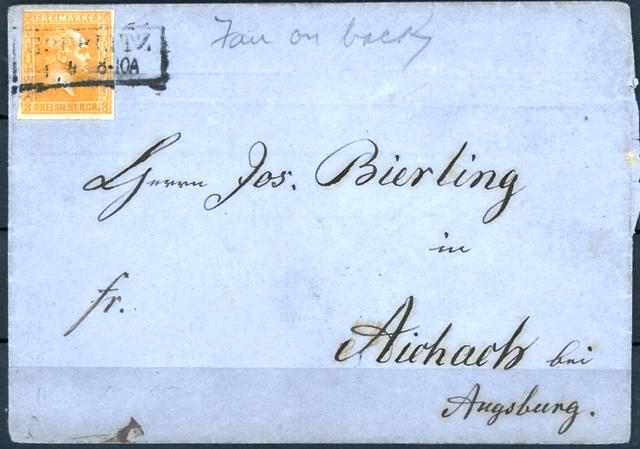 FREIMARKE
8-10A
3 DREI SILBERGR. 3
on back
Herrn Jos. Bierling
in
fr.
Aichach bei
Augsburg.